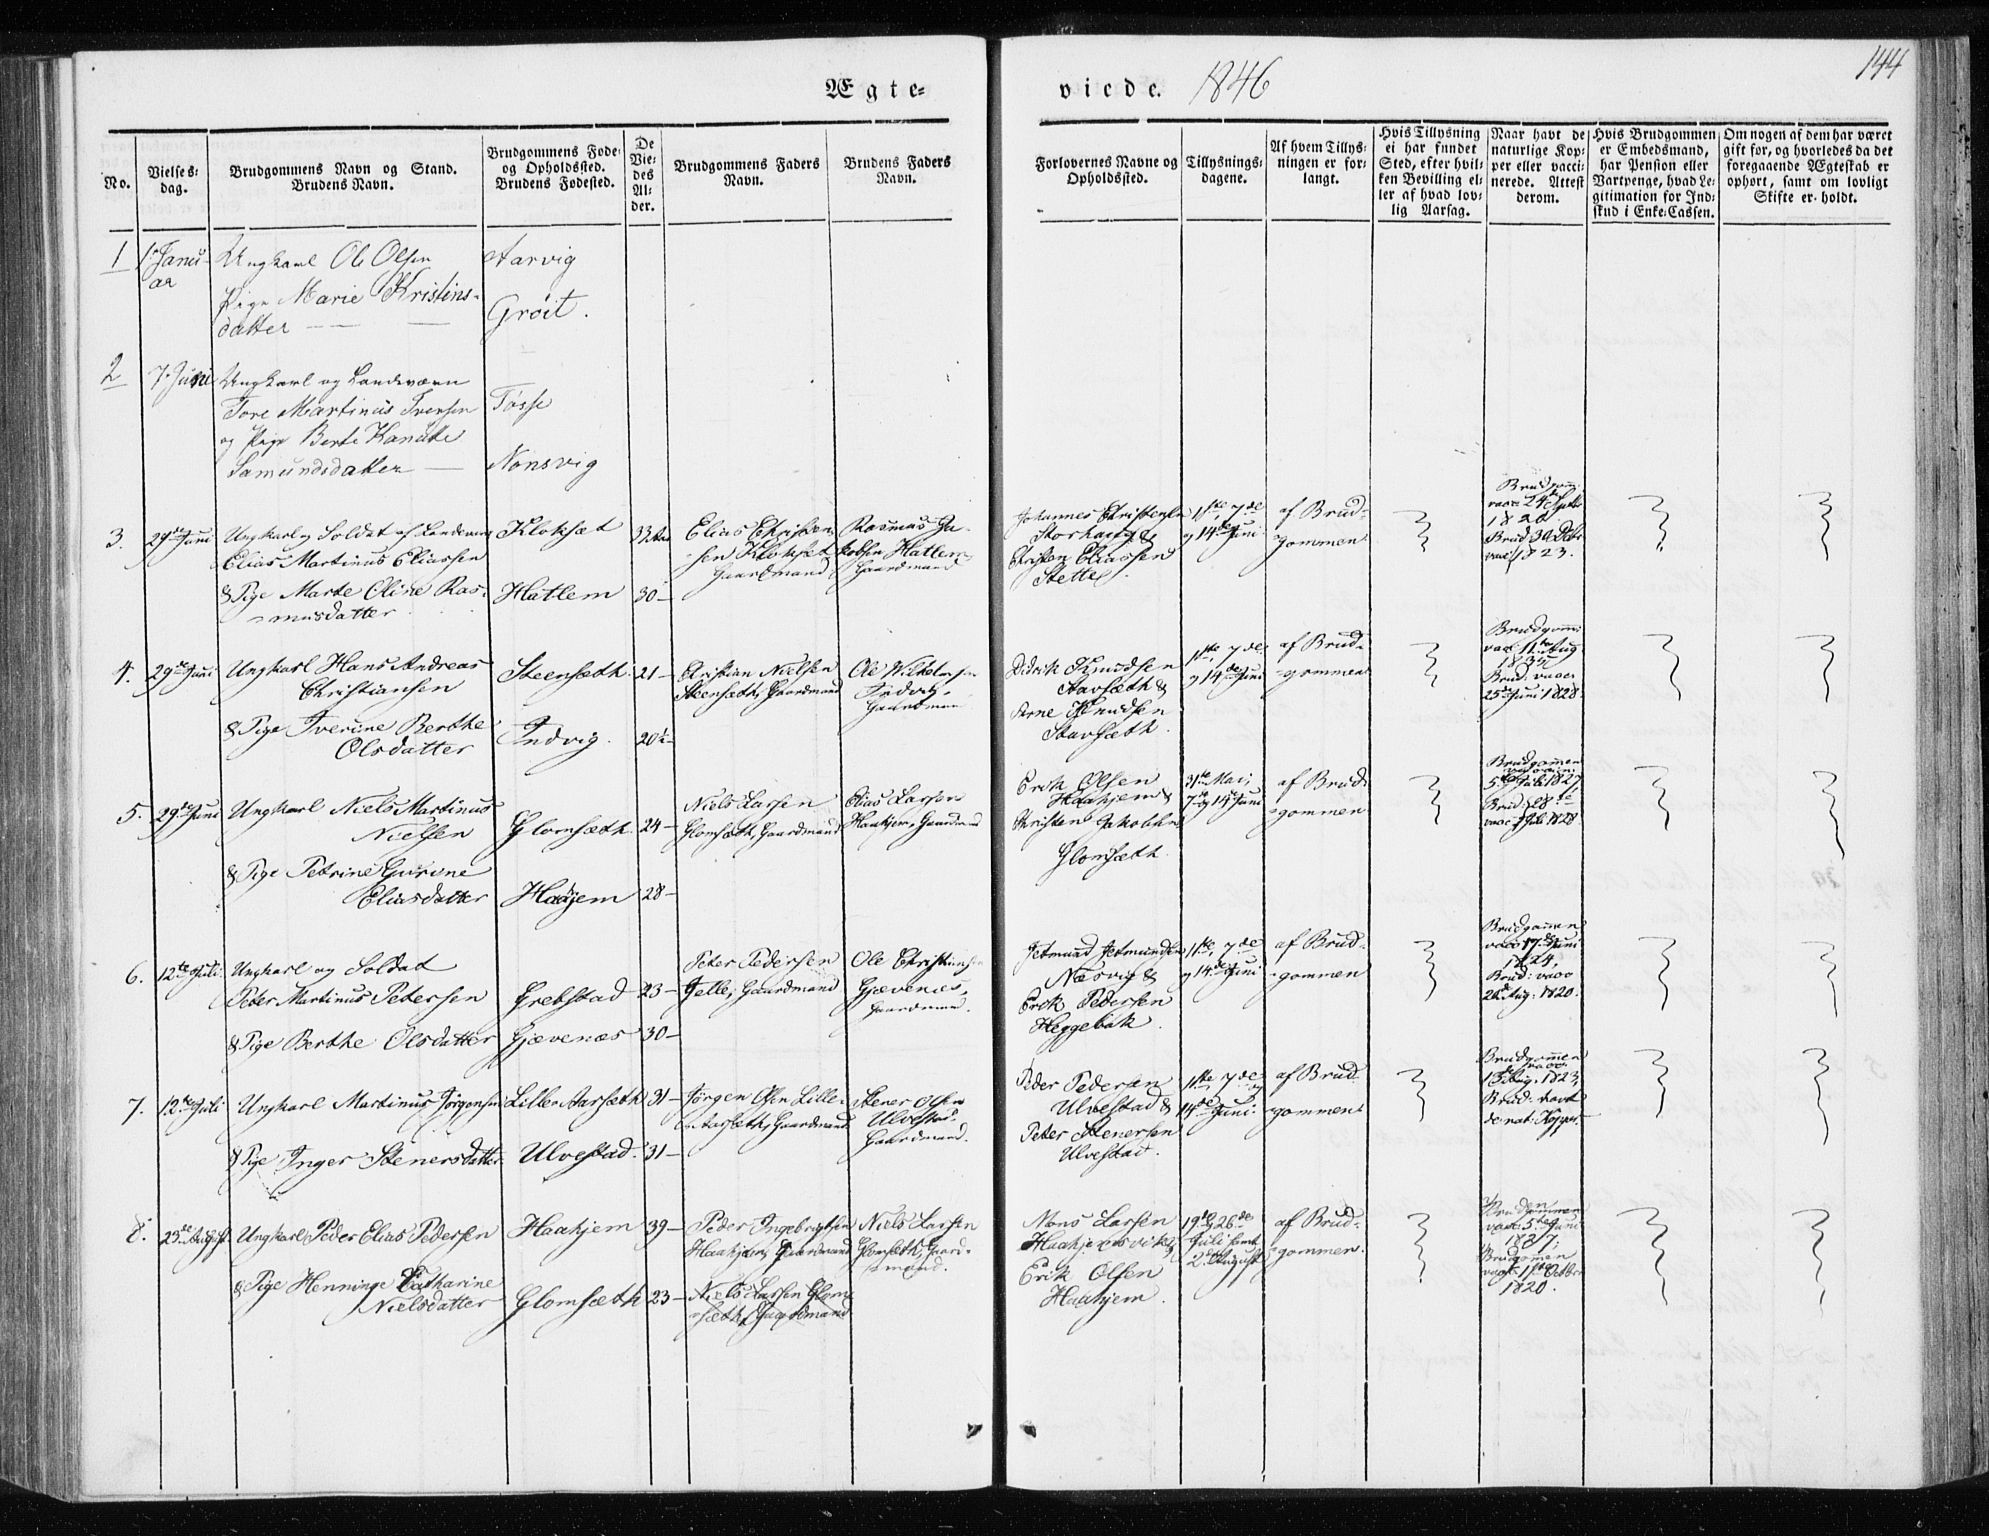 144
Ægte-
viede. 1846
No.
Vielses-
dag.
Brudgommens Navn og Stand.
Brudens Navn.
Brudgommens Føde-
og Opholdssted.
Brudens Fødested.
De
Vie-
des
Al-
der.
Brudgommens Faders
Navn.
Brudens Faders
Navn.
Forlovernes Navne og
Opholdssted.
Tillysnings-
dagene.
Af hvem Tillys-
ningen er for-
langt.
Hvis Tillysning
ei har fundet
Sted, efter hvil-
ken Bevilling el-
ler af hvad lov-
lig Aarsag.
Naar havt de
naturlige Kop-
per eller vacci-
nerede. Attest
derom.
Hvis Brudgommen
er Embedsmand,
har Pension eller
Vartpenge, hvad Le-
gitimation for Ind-
skud i Enke-Cassen.
Om nogen af dem har været
gift før, og hvorledes da det
foregaaende Ægteskab er
ophørt, samt om lovligt
Skifte er holdt.
1
1. Janu-
ar
Ungkarl Ole Olsen
Pige Marie Kristens-
datter
Aarvig
Grøit.
2
7. Juni
Ungkarl og Landværn
Tore Martinus Iversen
og Pige Berte Kanutte
Samundsdatter
Tøsse
Nonsvig
3.
29de Juni
Ungkarl og Soldat af Landeværn
Elias Martinus Eliassen
& Pige Marte Oline Ras-
musdatter
Kloksæt
Hatlem
33
30
Elias Christen-
sen Kloksæt
Gaardmand
Rasmus Ja-
kobsen Hatlem
Gaardmand
Johannes Christensen
Storhaug &
Christen Eliassen
Stette
1ste, 7de
og 14de Juni
af Brud-
gommen
Brudgom
vacc. 24de
1820
Brud 30
vacc. 1823.
4.
29de Juni
Ungkarl Hans Andreas
Christiansen
& Pige Iverine Berthe
Olsdatter
Steensæth
Indvig.
21
20½
Christian Nielsen
Steensæth, Gaardmand
Ole Wilhelmsen
Indvig,
Gaardmand
Didrik Knudsen
Stavsæth &
Arne Knudsen
Stavsæth.
1ste, 7de
og 14de Juni
af Brud-
gommen
Brudgom:
vacc. 11te Aug.
Brud: vacc.
25de Juni 1828.
5.
29de Juni
Ungkarl Niels Martinus
Nielsen
& Pige Petrine Gurine
Eliasdatter
Glomsæth
Haajem
24
28
Niels Larsen
Glomsæth, Gaardmand
Elias Larsen
Haakjem, Gaardmand
Erik Olsen
Haakjem &
Christen Jakobsen
Glomsæth.
31te Mai,
7de og 14de Juni
af Brud-
gommen
Brudgomen
5te Juli 1827,
Brud: 28de
vacc. Juli 1828.
6.
12te Juli
Ungkarl og Soldat
Peter Martinus Petersen
& Pige Berthe Olsdatter
Grebstad
Gjævenæs
23
30
Peter Pedersen
Gjelle, Gaardmand
Ole Christiansen
Gjævenæs,
Gaardmand.
Jetmund Jetmundsen
Næsvig &
Erik Pedersen
Heggebak.
1ste, 7de
og 14de Juni
af Brud-
gommen
Brudgommen
vacc. 17de Juni
1824,
Brud: vacc
Aug. 1820.
7.
12te Juli
Ungkarl Martinus Jørgensen
& Pige Inger Stenersdatter
Lille Aarsæth
Ulvestad.
31
31
Jørgen Olsen Lille-
Aarsæth, Gaardmand
Stener Olsen
Ulvestad
Gaardmand.
Peder Pedersen
Ulvestad &
Peter Stenersen
Ulvestad.
1ste, 7de og
14de Juni.
af Brud-
gommen
Brudgommen
vacc.
Aug. 1823,
Brud: havt
de nat: Kopper.
8.
23de August
Ungkarl Peder Elias Pedersen
& Pige Henninge Catharine
Nielsdatter
Haakjem
Glomsæth
39
23
Peder Ingebrigtsen
Haakjem, Gaardmand
Niels Larsen Glom-
sæth, Gaardmand
Niels Larsen
Glomsæth, Gaard-
mand.
Mons Larsen
Haakjemsvik &
Erik Olsen
Haakjem.
19de, 26de
Juli samt
2den August
af Brud-
gommen.
Brudgommen
vacc. 5te Juni
1827;
Brudgomen
vacc. 1ste Octbr
1820.